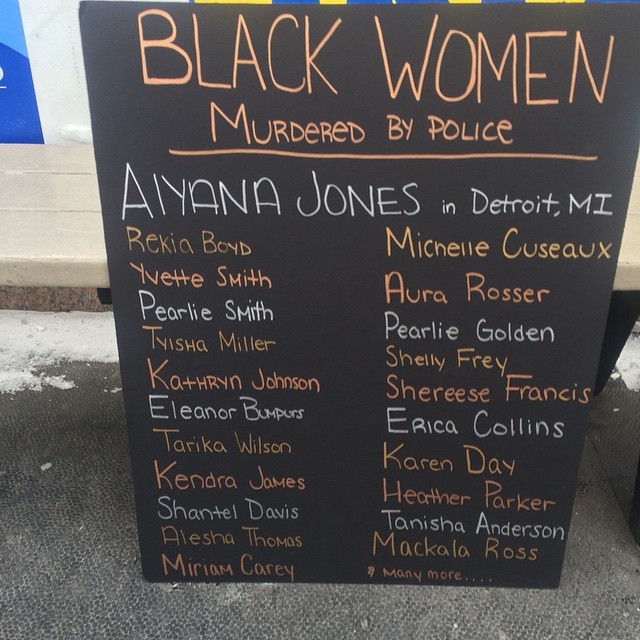 BLACK WOMEN
MURDERED BY POLICE
AIYANA JONES in Detroit, MI
Rekia Boyd
Yvette Smith
Pearlie Smith
Tyisha Miller
Kathryn Johnson
Eleanor Bumpurs
Tarika Wilson
Kendra James
Shantel Davis
Alesha Thomas
Miriam Carey
Michelle Cuseaux
Aura Rosser
Pearlie Golden
Shelly Frey
Shereese Francis
Erica Collins
Karen Day
Heather Parker
Tanisha Anderson
Mackala Ross
& Many more....